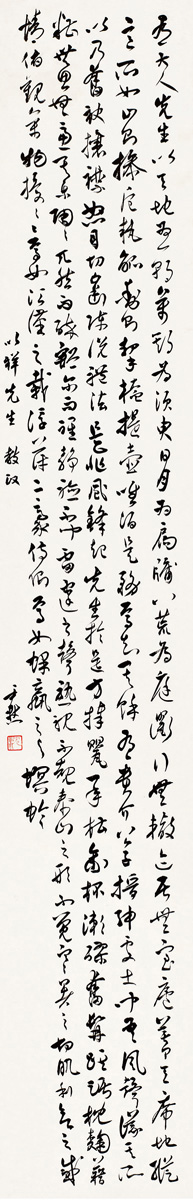 有大人先生以天地為一朝萬期為須臾日月為扃牖八荒為庭衢行無轍迹居無室廬幕天席地縱
意所如止則操卮執觚動則挈榼提壺唯酒是務焉知其餘有貴介公子搢紳處士聞吾風聲議其所
以乃奮袂攘襟怒目切齒陳說禮法是非鋒起先生於是方捧甖承槽銜杯漱醪奮髯踑踞枕麴藉
糟無思無慮其樂陶陶兀然而醉豁爾而醒靜聽不聞雷霆之聲熟視不睹泰山之形不覺寒暑之切肌利欲之感
情俯觀萬物擾擾焉如江漢之載浮萍二豪侍側焉如蜾蠃之與螟蛉
以祥先生教政
尹默